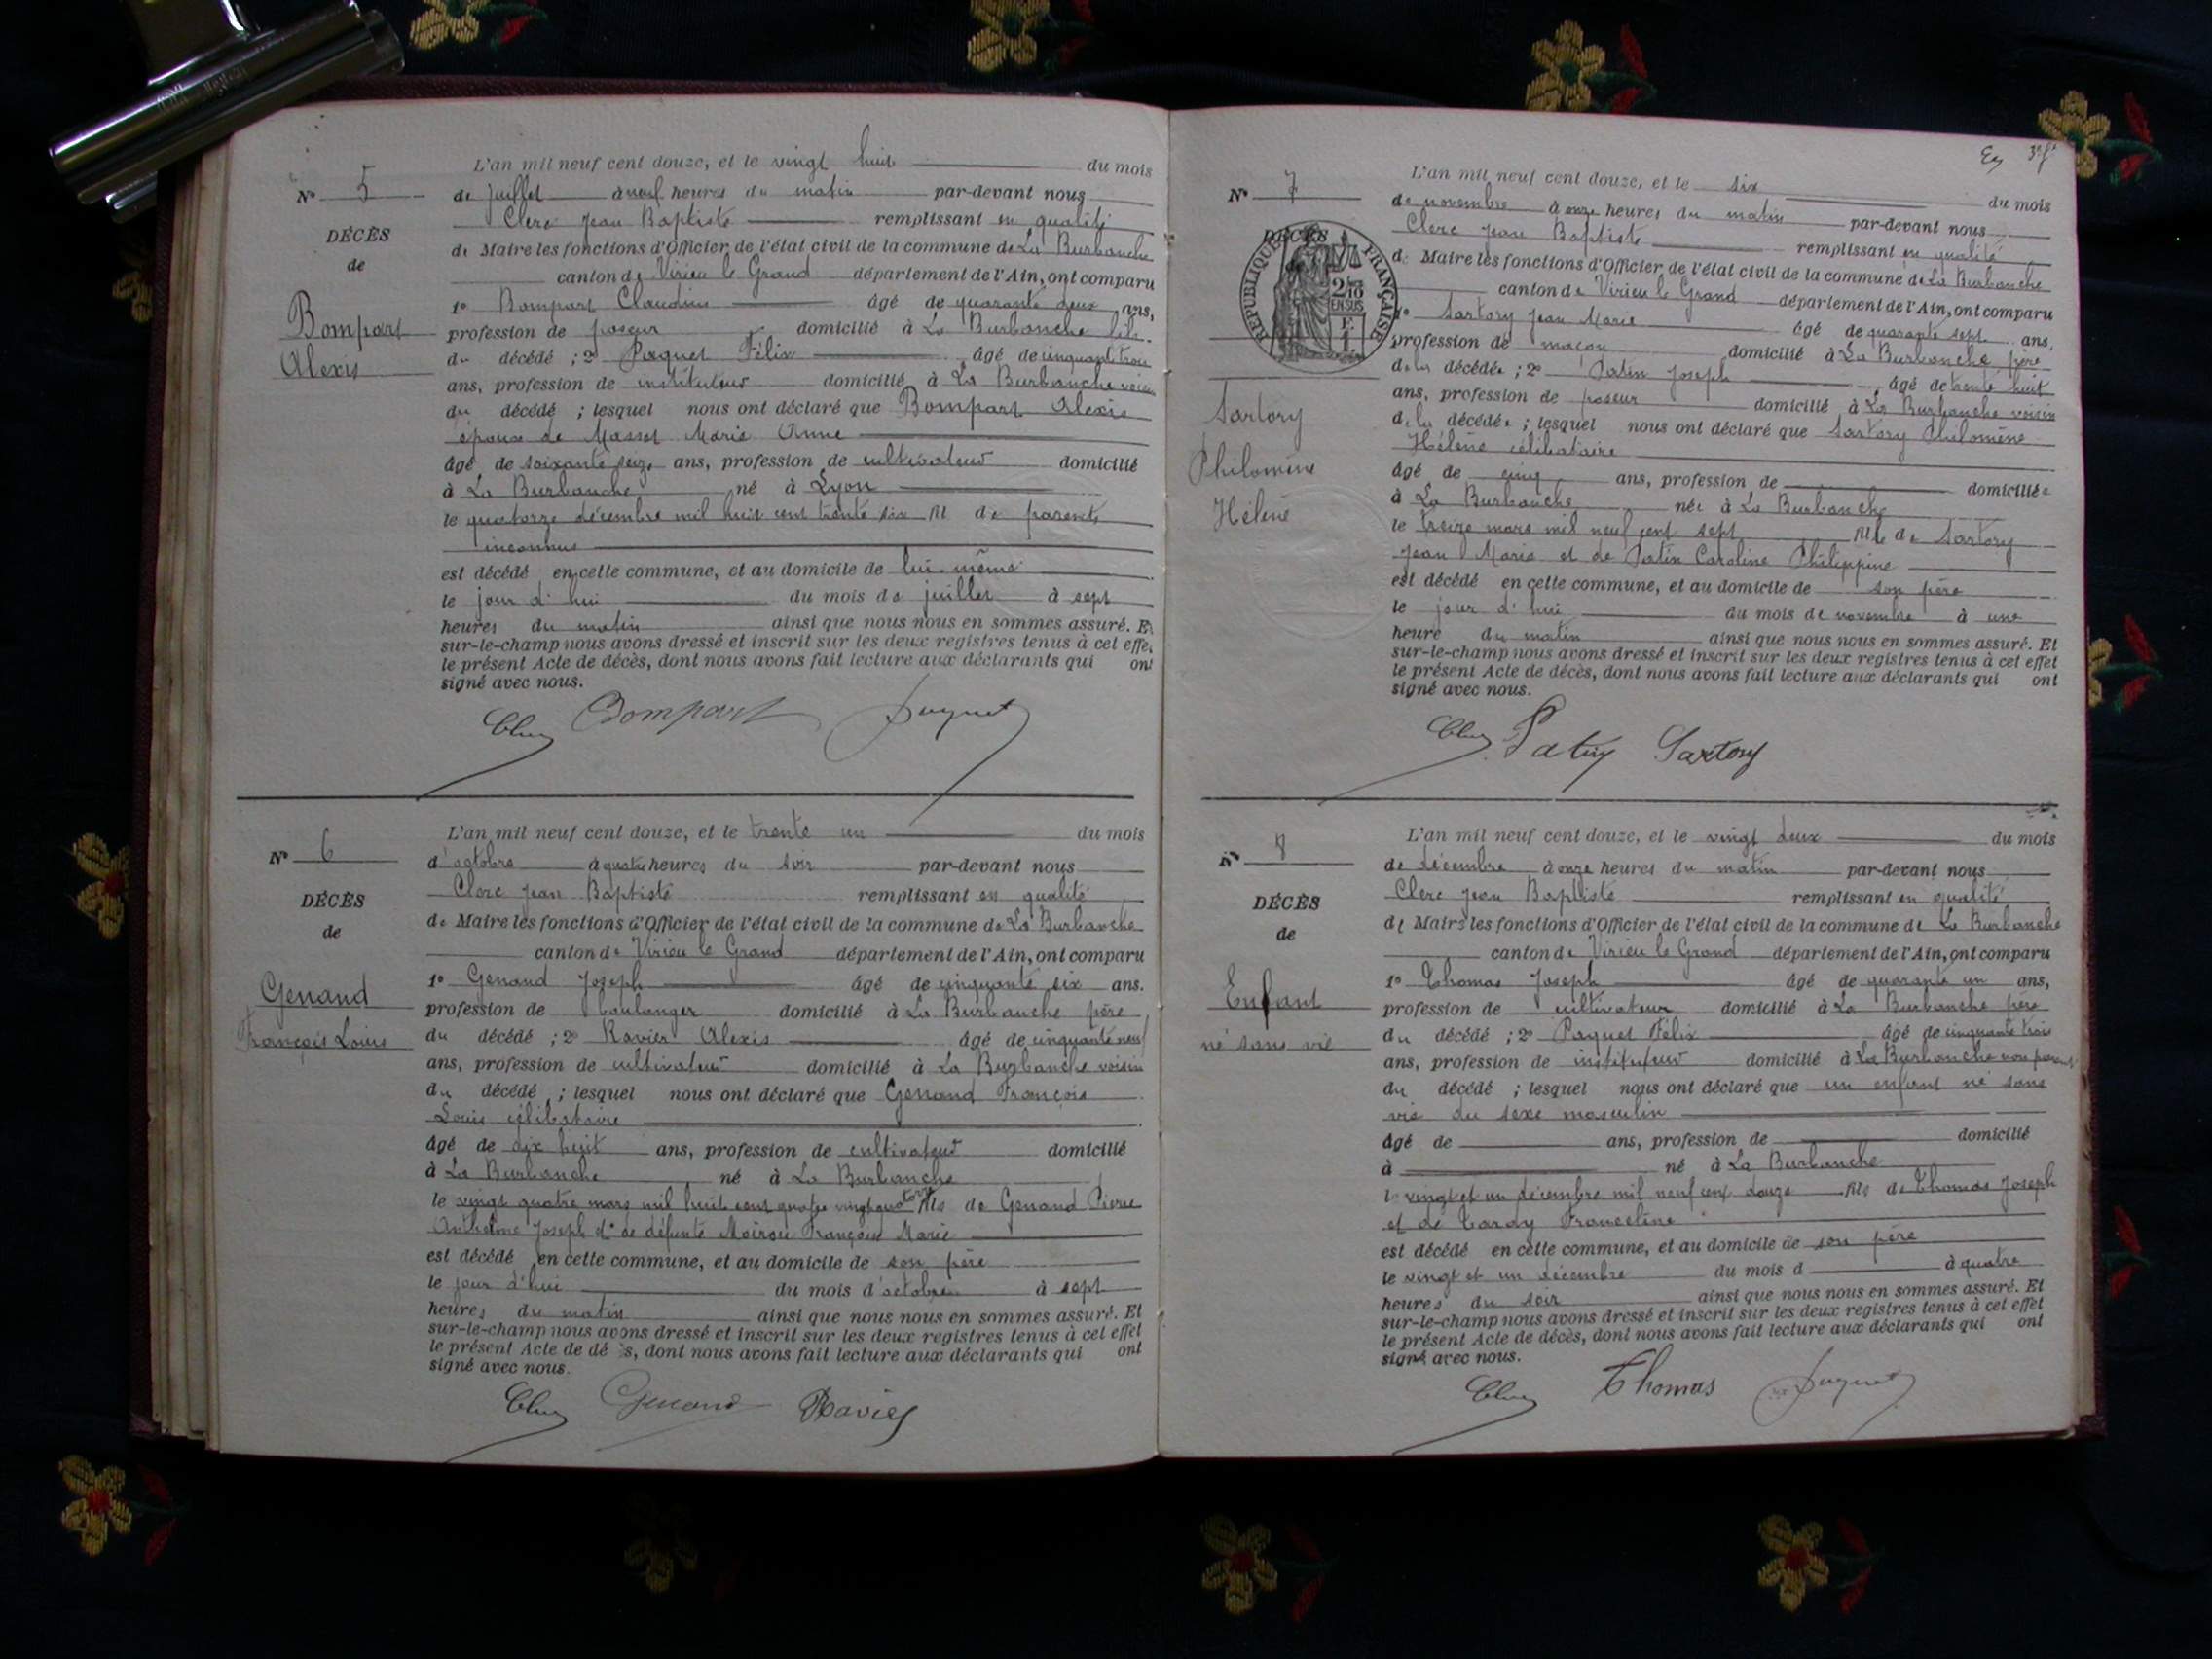 L'an mil neuf cent douze, et le vingt huit du mois
N° 5 de juillet à neuf heures du matin par-devant nous
Clerc Jean Baptiste remplissant en qualité
DÉCÈS
de Maire les fonctions d'Officier de l'état civil de la commune de La Burbanche
de
canton de Virieu le Grand département de l'Ain, ont comparu
1° Bompart Claudius âgé de quarante deux ans,
Bompart
profession de poseur domicilié à La Burbanche fils
Alexis
du décédé ; 2° Paquet Félix âgé de cinquante trois
ans, profession de instituteur domicilié à La Burbanche voisin
du décédé ; lesquel nous ont déclaré que Bompart Alexis
époux de Masset Marie Anne
âgé de soixante seize ans, profession de cultivateur domicilié
à La Burbanche né à Lyon
le quatorze décembre mil huit cent trente six fil de parents
inconnus
est décédé en cette commune, et au domicile de lui-même
le jour d'hui du mois de juillet à sept
heures du matin ainsi que nous nous en sommes assuré. Et
sur-le-champ nous avons dressé et inscrit sur les deux registres tenus à cet effet
le présent Acte de décès, dont nous avons fait lecture aux déclarants qui ont
signé avec nous.
Clerc Bompart Paquet
L'an mil neuf cent douze, et le trente un du mois
N° 6 d'octobre à quatre heures du soir par-devant nous
Clerc Jean Baptiste remplissant en qualité
DÉCÈS
de Maire les fonctions d'Officier de l'état civil de la commune de La Burbanche
de
canton de Virieu le Grand département de l'Ain, ont comparu
1° Genand Joseph âgé de cinquante six ans.
Genand
profession de boulanger domicilié à La Burbanche père
François Louis
du décédé ; 2° Ravier Alexis âgé de cinquante neuf
ans, profession de cultivateur domicilié à La Burbanche voisin
du décédé ; lesquel nous ont déclaré que Genand François
Louis célibataire
âgé de dix huit ans, profession de cultivateur domicilié
à La Burbanche né à La Burbanche
le vingt quatre mars mil huit cent quatre vingt quatorze fils de Genand Pierre
Anthelme Joseph et de défunte Françoise Marie
est décédé en cette commune, et au domicile de son père
le jour d'hui du mois d'octobre à sept
heures du matin ainsi que nous nous en sommes assuré. Et
sur-le-champ nous avons dressé et inscrit sur les deux registres tenus à cet effet
le présent Acte de dé s, dont nous avons fait lecture aux déclarants qui ont
signé avec nous.
Clerc Genand Ravier
3e ft
L'an mil neuf cent douze, et le six du mois
N° 7 de novembre à onze heures du matin par-devant nous
Clerc Jean Baptiste remplissant en qualité
DÉCÈS
RÉPUBLIQUE FRANÇAISE
2/10 EN SUS
de Maire les fonctions d'Officier de l'état civil de la commune de La Burbanche
canton de Virieu le Grand département de l'Ain, ont comparu
1° Sartory Jean Marie âgé de quarante sept ans,
profession de maçon domicilié à La Burbanche père
de la décédée ; 2° Patin Joseph âgé de trente huit
ans, profession de poseur domicilié à La Burbanche voisin
Sartory
de la décédée ; lesquel nous ont déclaré que Sartory Philomène
Hélène célibataire
Philomène
âgé de cinq ans, profession de domiciliée
à La Burbanche née à La Burbanche
Hélène
le treize mars mil neuf cent sept fille de Sartory
Jean Marie et de Patin Caroline Philippine
est décédé en cette commune, et au domicile de son père
le jour d'hui du mois de novembre à une
heure du matin ainsi que nous nous en sommes assuré. Et
sur-le-champ nous avons dressé et inscrit sur les deux registres tenus à cet effet
le présent Acte de décès, dont nous avons fait lecture aux déclarants qui ont
signé avec nous.
Clerc Patin Sartory
L'an mil neuf cent douze, et le vingt deux du mois
N° 8 de décembre à onze heures du matin par-devant nous
Clerc Jean Baptiste remplissant en qualité
DÉCÈS
de Maire les fonctions d'Officier de l'état civil de la commune de La Burbanche
de
canton de Virieu le Grand département de l'Ain, ont comparu
1° Thomas Joseph âgé de quarante un ans,
Enfant
profession de cultivateur domicilié à La Burbanche père
né sans vie
du décédé ; 2° Paquet Félix âgé de cinquante trois
ans, profession de instituteur domicilié à La Burbanche non parent
du décédé ; lesquel nous ont déclaré que un enfant né sans
vie du sexe masculin
âgé de ans, profession de domicilié
à né à La Burbanche
le vingt et un décembre mil neuf cent douze fils de Thomas Joseph
et de Tardy Franceline
est décédé en cette commune, et au domicile de son père
le vingt et un décembre du mois d à quatre
heures du soir ainsi que nous nous en sommes assuré. Et
sur-le-champ nous avons dressé et inscrit sur les deux registres tenus à cet effet
le présent Acte de décès, dont nous avons fait lecture aux déclarants qui ont
signé avec nous.
Clerc Thomas Paquet